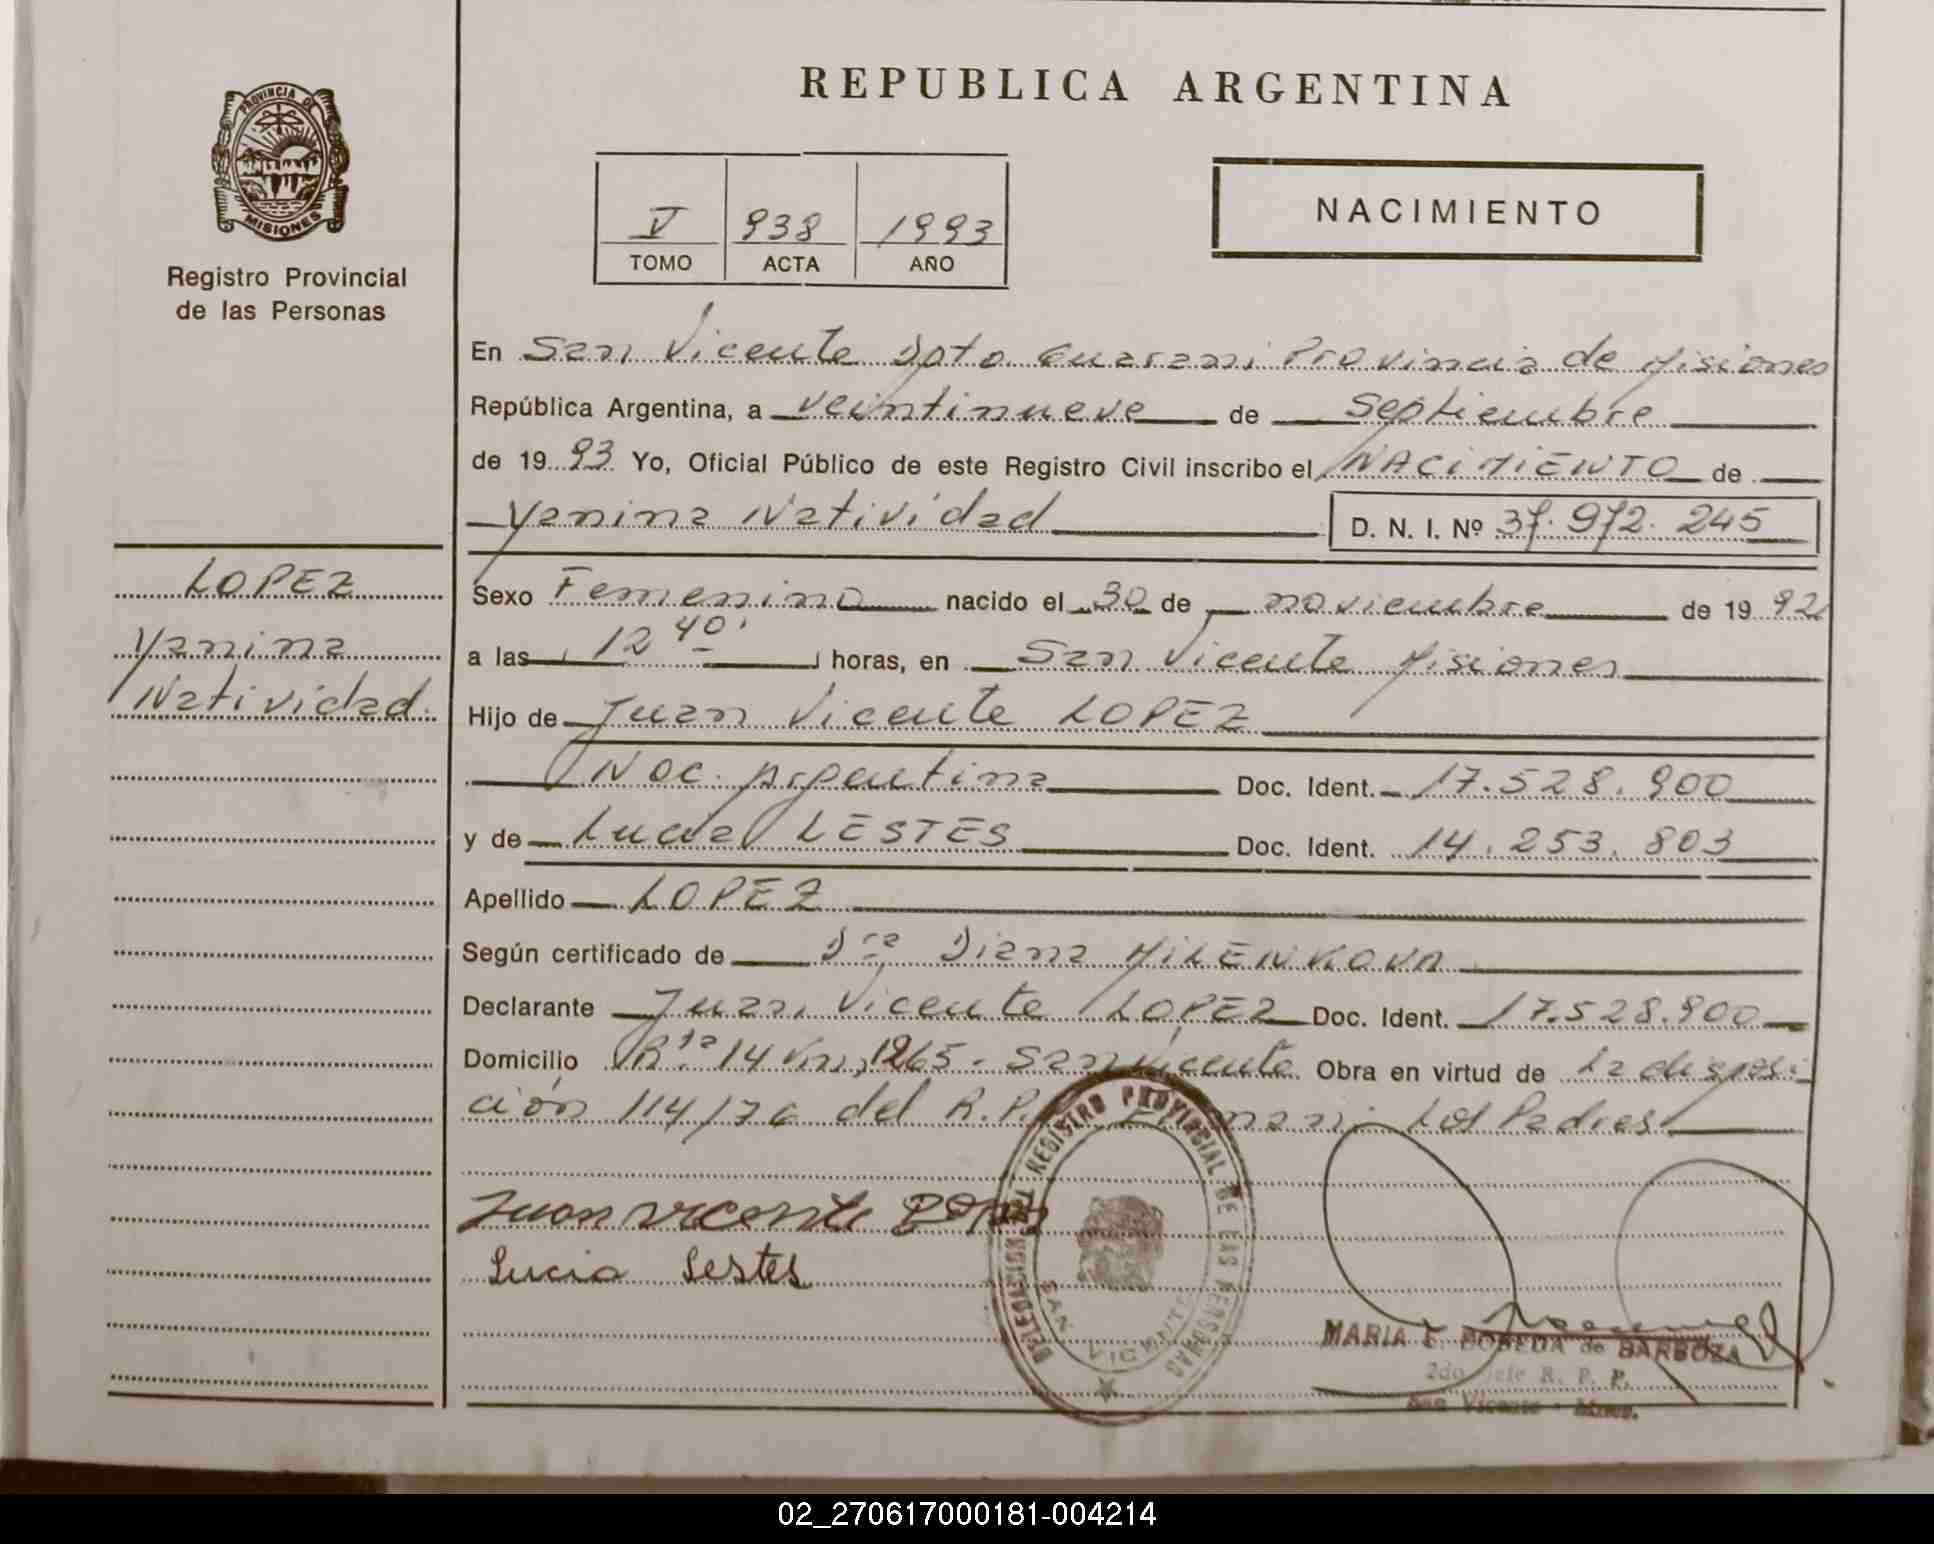 REPUBLICA ARGENTINA
PROVINCIA DE
MISIONES
Registro Provincial
de las Personas
V 938 1993
TOMO ACTA AÑO
NACIMIENTO
En San Vicente Dpto Guarani Provincia de Misiones
República Argentina, a veintinueve de Septiembre
de 1993 Yo, Oficial Público de este Registro Civil inscribo el NACIMIENTO de
Yanina Natividad D. N. I. Nº 37.972.245
LOPEZ
Yanina
Natividad.
Sexo Femenino nacido el 30 de noviembre de 1992
a las 12 40' horas, en San Vicente Misiones
Hijo de Juan Vicente LOPEZ
Nac. Argentina Doc. Ident. 17.528.900
y de Lucia LESTES Doc. Ident. 14.253.803
Apellido LOPEZ
Según certificado de Dra Diana MILENKOVA
Declarante Juan Vicente LOPEZ Doc. Ident. 17.528.900
Domicilio Rta 14 Km, 1265 - San Vicente Obra en virtud de La disposi
ción 114/76 del R.P.P. Los Padres
Juan Vicente
Lucia Lestes
DELEGACION REGISTRO PROVINCIAL DE LAS PERSONAS
SAN VICENTE
MARIA E. BOBEDA de BARBOZA
2do Jefe R. P. P.
San Vicente - Mnes.
02_270617000181-004214